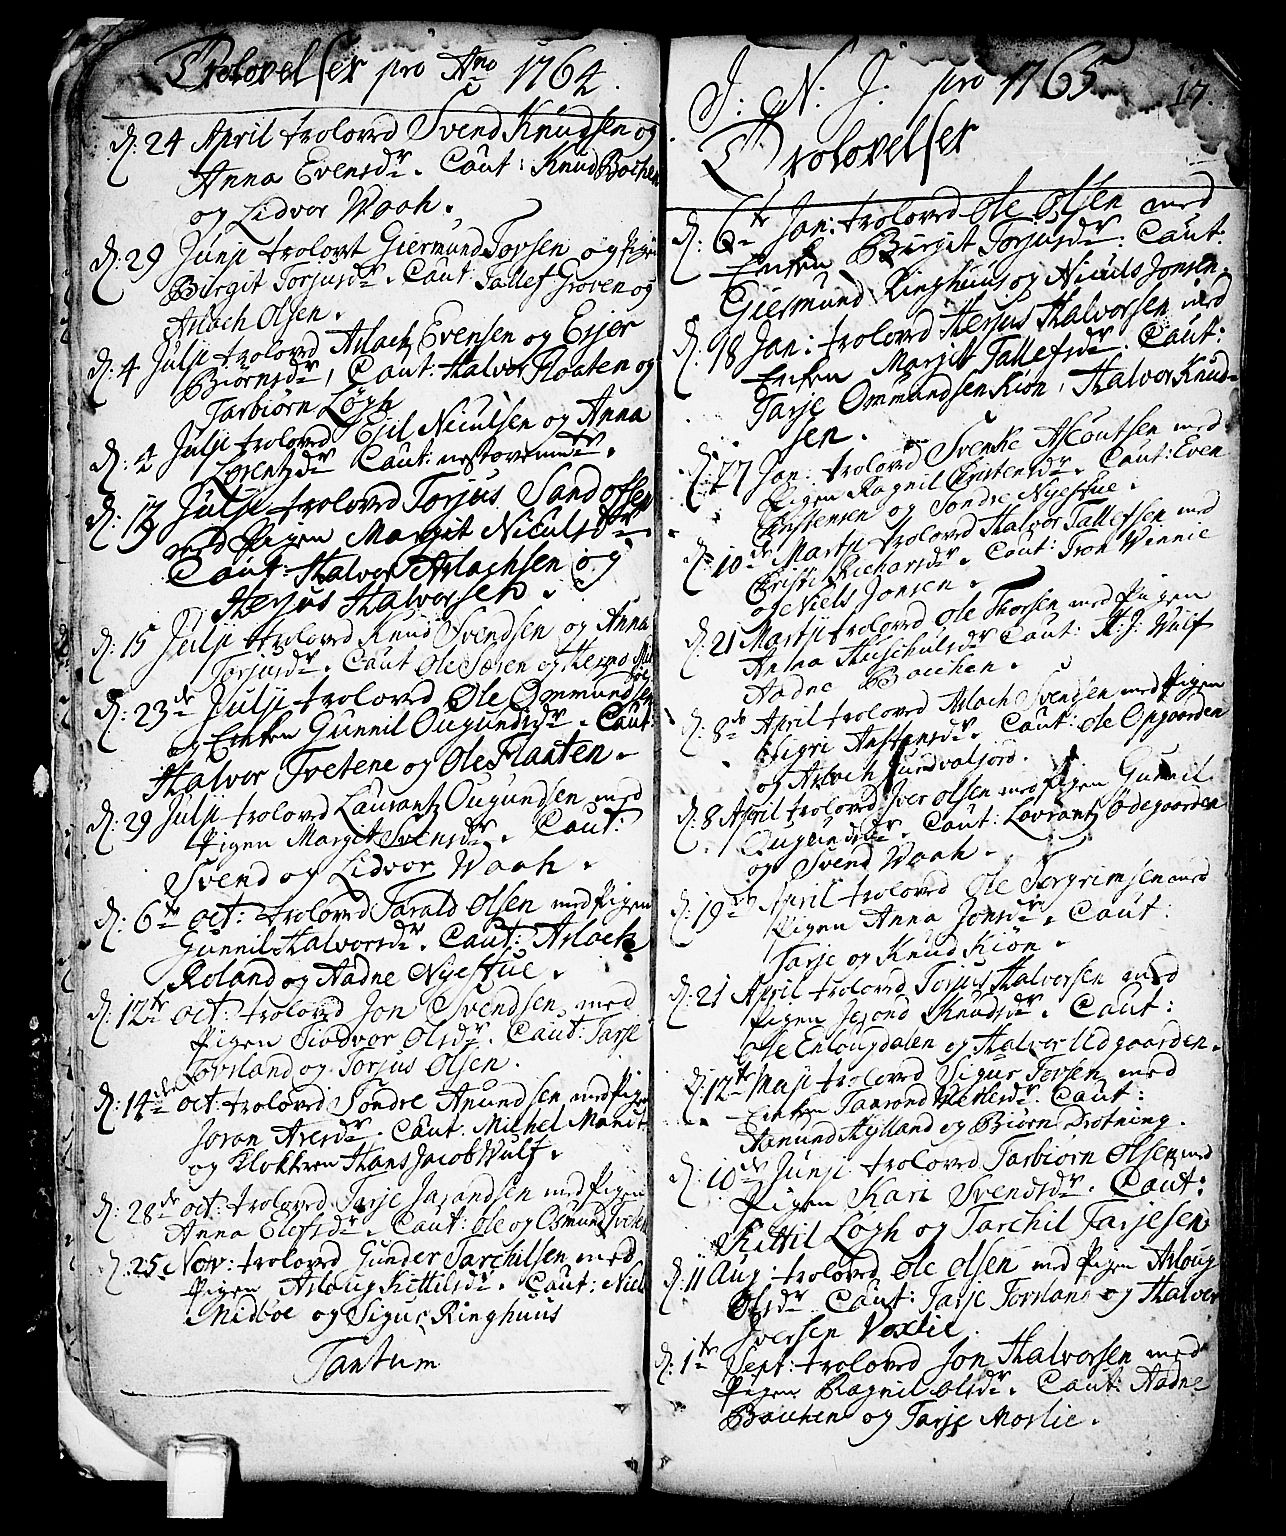 Trolovelser pro Ano 1764.
d: 24 April troloved Svend Knudsen og
Anna Evensdr. Caut: Knud Bachen
og Lidvor Waah.
d: 29 Junji trolovt Giermund Tovsen og Pige
Birgit Torjusdr. Caut Tallef Groven og
Aslach Olsen.
d: 4 Julji trolovd Aslach Evensen og Ejer
Biørnsdr, Caut: Halvor Floaten og
Tarbiørn Løgh
d: 2 Julji trolovd Egil Niculsen og Anna
Lorentzdr Caut:
d: 12 Julji trolovd Torjus Sandofsen
med Pigen Margit Niculsdr.
Caut Halvor Aslachsen og
Herjus Halvorsen.
d: 15 Julji trolovd Knud Svendsen og Anna
Torjusdr. Caut Ole
d: 23de Julji trolovd Ole Ommundsen
og Enken Gunnil Ougundsdr. Caut:
Halvor Tvetene og Ole Flaaten.
d: 29 Julji trolovd Laurantz Ougundsen med
Pigen Margit Svensdr. Caut:
Svend og Lidvor Waah.
d: 6te oct: trolovd Tarald Olsen med Pigen
Gunnil Halvorsdr. Caut: Aslach
Roland og Aadne Nyestue.
d: 12te oct: trolovd Jon Svendsen med
Pigen Siodvor Olsdr. Caut: Tarje
Tovsland og Torjus Olsen.
d: 14de oct: trolovd Sondre Amundsen med Pigen
Joran Aresdr. Caut: Michel Mandt
og Klokkeren Hans Jacob Wulf.
d: 28de oct: trolovd Tarje Jaxandsen med Pigen
Anna Olefsdr. Caut: Ole og Osmund Tveten
d: 25 Nov: trolovd Gunder Tarchilsen med
Pigen Aslaug Kettilsdr. Caut: Niels
Midboe og Sigur Ringhuus
Tantum
J: N: J: pro 1765 17.
Trolovelser
d: 6te Jan: trolovd Ole Olsen med
Enken Birgit Torjusdr. Caut:
Giermund Ringhuus og Niculs Jonsen.
d: 18 Jan: trolovd Herjus Halvorsen med
Enken Margit Tallefsdr. Caut:
Tarje Ommundsen Kiøn, Halvor Knud-
sen.
d: 27 Jan: trolovd Svenke Ascoutsen med
Pigen Ragnil Christensdr. Caut: Even
Christensen og Sondre Nyestue.
d: 10de Martji trolovd Halvor Tallefsen med
Christi Richarsdr. Caut: Tron Vinnie
og Niels Jonsen.
d: 21 Martji trolovd Ole Thorsen med Pigen
Anna Caut: H. J. Wulf
Aadne Bacchen.
d: 8de April trolovd Aslach Svensen med Pigen
Sigri Anstensdr. Caut: Ole Opgaarden
og Aslach
d: 8 April trolovd Iver Olsen med Pigen Gunnil
Ougundsdr. Caut: Lavrantz Ødegaarden
og Svend Waah.
d: 19de April trolovd Ole Torgrimsen med
Pigen Anna Jonsdr. Caut:
Tarje og Knud Kiøn.
d: 21 April trolovd Torjus Halvorsen med
Pigen Jorond Knudsdr. Caut:
Ole Enlougdalen og Halvor Udgaarden.
d: 12te Maji trolovd Sigur Torjsen med
Enken Taarond Caut:
Aamund Hylland og Biørn Drotning.
d: 10de Junji trolovd Tarbiørn Olsen med
Pigen Kari Svendsdr. Caut:
Kittil Løgh og Tarchil Tarjesen
d: 11 Aug: trolovd Ole Olsen med Pigen Aslaug
Olsdr. Caut: Tarje Tovsland og Halvor
Iversen Voxlie.
d: 1te Sept: trolovd Jon Halvorsen med
Pigen Ragnil Olsdr. Caut: Aadne
Bacchen og Tarje Moslie.